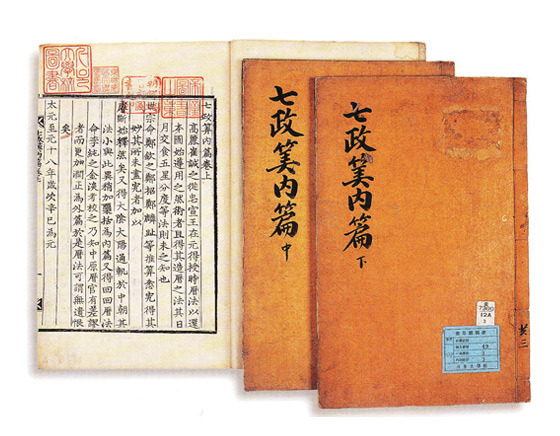 七政筭內篇卷上
高麗崔誠之從忠宣王在元得授時曆法以還
本國始遵用之然術者且得其造曆之法其日
月交食五星分度等法則未之知也
世宗命鄭欽之鄭招鄭麟趾等推算悉究得其
妙其所未盡究者加以
睿斷始釋然矣又得大陰大陽通軌於中朝其
法小與此異稍加櫽括爲內篇又得回回曆法
命李純之金淡考校之乃知中原曆官有差謬
者而更加潤正爲外篇於是曆法可謂無遺恨
矣
太元至元十八年歲次辛巳爲元
七政筭内篇 中
七政筭内篇 下
共三
12A